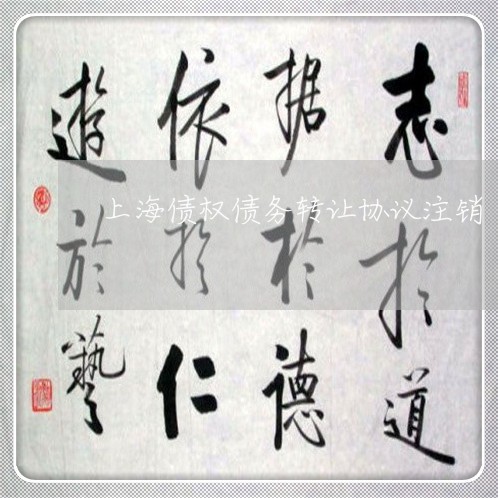 志於道
据於德
依於仁
遊於藝
上海债权债务转让协议注销